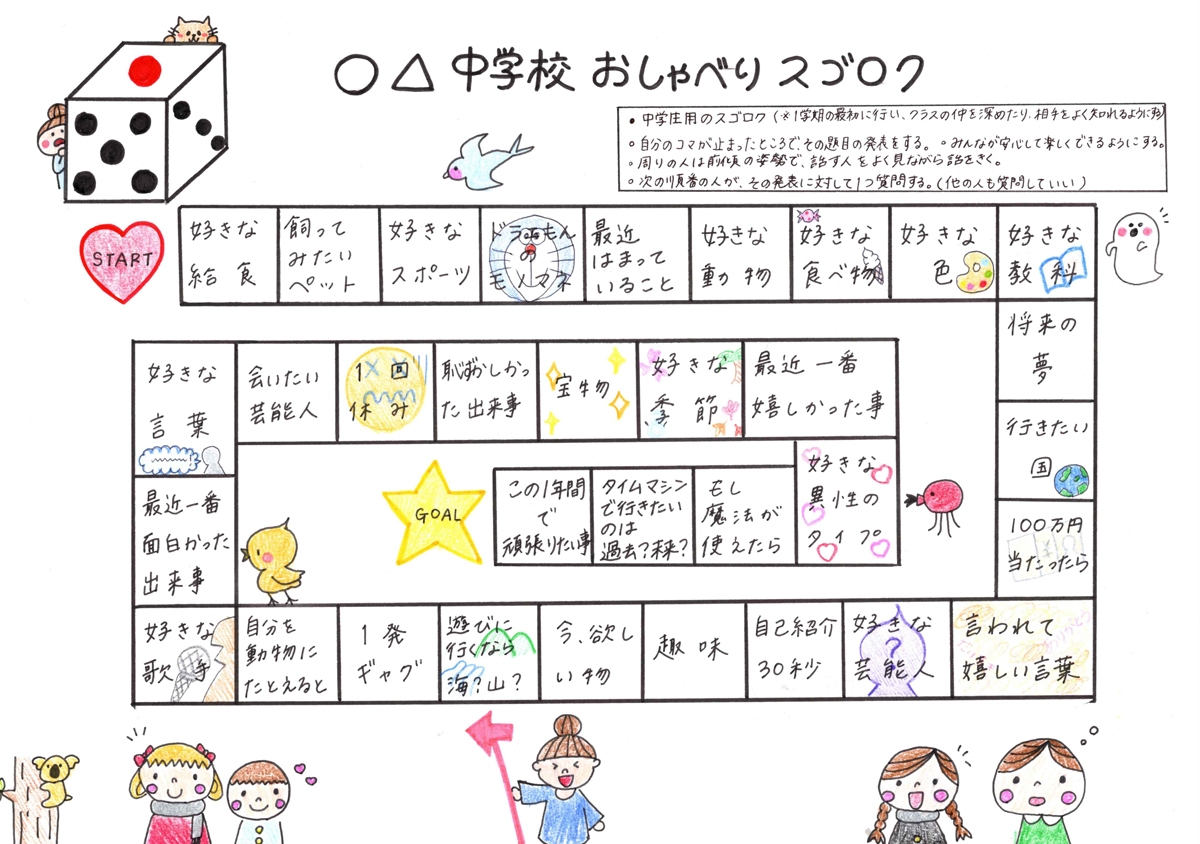 ○△中学校 おしゃべりスゴロク
・中学生用のスゴロク(※1学期の最初に行い、クラスの仲を深めたり、相手をよく知れるようにする)
○自分のコマが止まったところで、その題目の発表をする。 ○みんなが安心して楽しくできるようにする。
・周りの人は前傾の姿勢で、話す人をよく見ながら話をきく。
○次の順番の人が、その発表に対して1つ質問する。(他の人も質問していい)
START
好きな
給食
飼って
みたい
ペット
好きな
スポーツ
ドラえもん
の
モノマネ
最近
はまって
いること
好きな
動物
好きな
食べ物
好きな
色
好きな
教科
将来の
夢
行きたい
国
100万円
当たったら
言われて
嬉しい言葉
好きな
芸能人
?
自己紹介
30秒
趣味
今、欲し
い物
遊びに
行くなら
海?山?
1発
ギャグ
自分を
動物に
たとえると
好きな
歌手
最近一番
面白かった
出来事
好きな
言葉
会いたい
芸能人
1回
休み
恥ずかしかっ
た出来事
宝物
好きな
季節
最近一番
嬉しかった事
好きな
異性の
タイプ
もし
魔法が
使えたら
タイムマシン
で行きたい
のは
過去?未来?
この1年間
で
頑張りたい事
GOAL